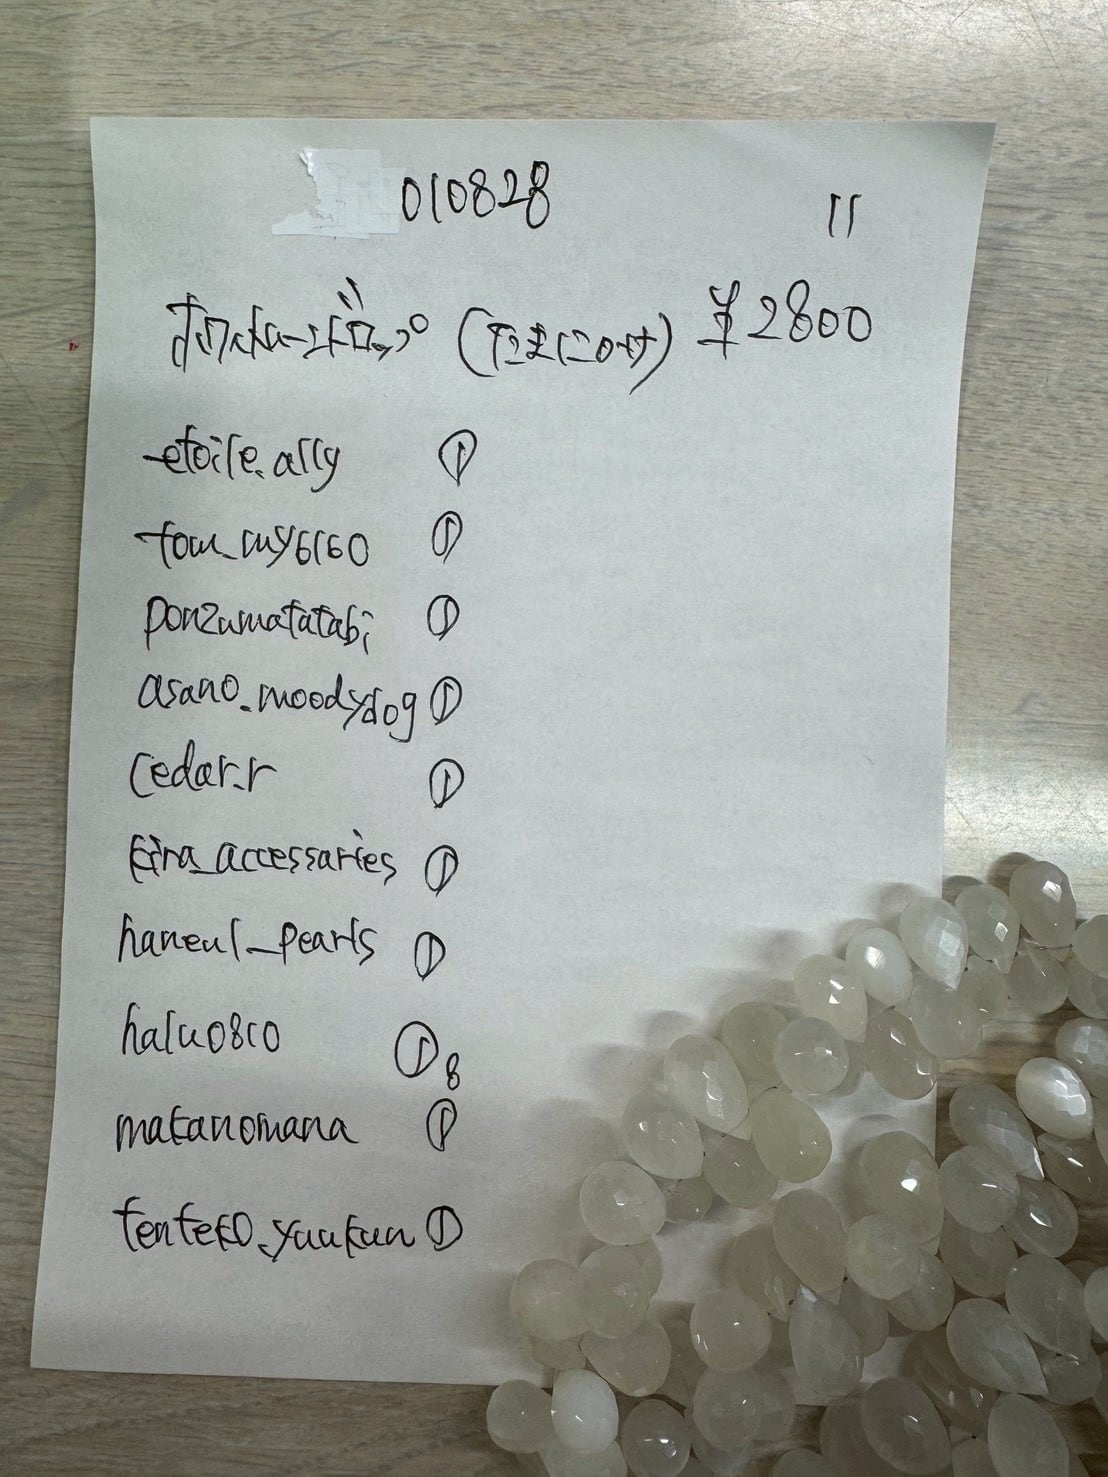 010828 11
ホワイトムーンドロップ ¥2800
etoile.ally ①
tom_my6160 ①
ponzumatatabi ①
asano.moodydog ①
cedar.r ①
kira_accessaries ①
haneul_pearls ①
halu0810 ① 8
makanomana ①
tenteko.yuukun ①